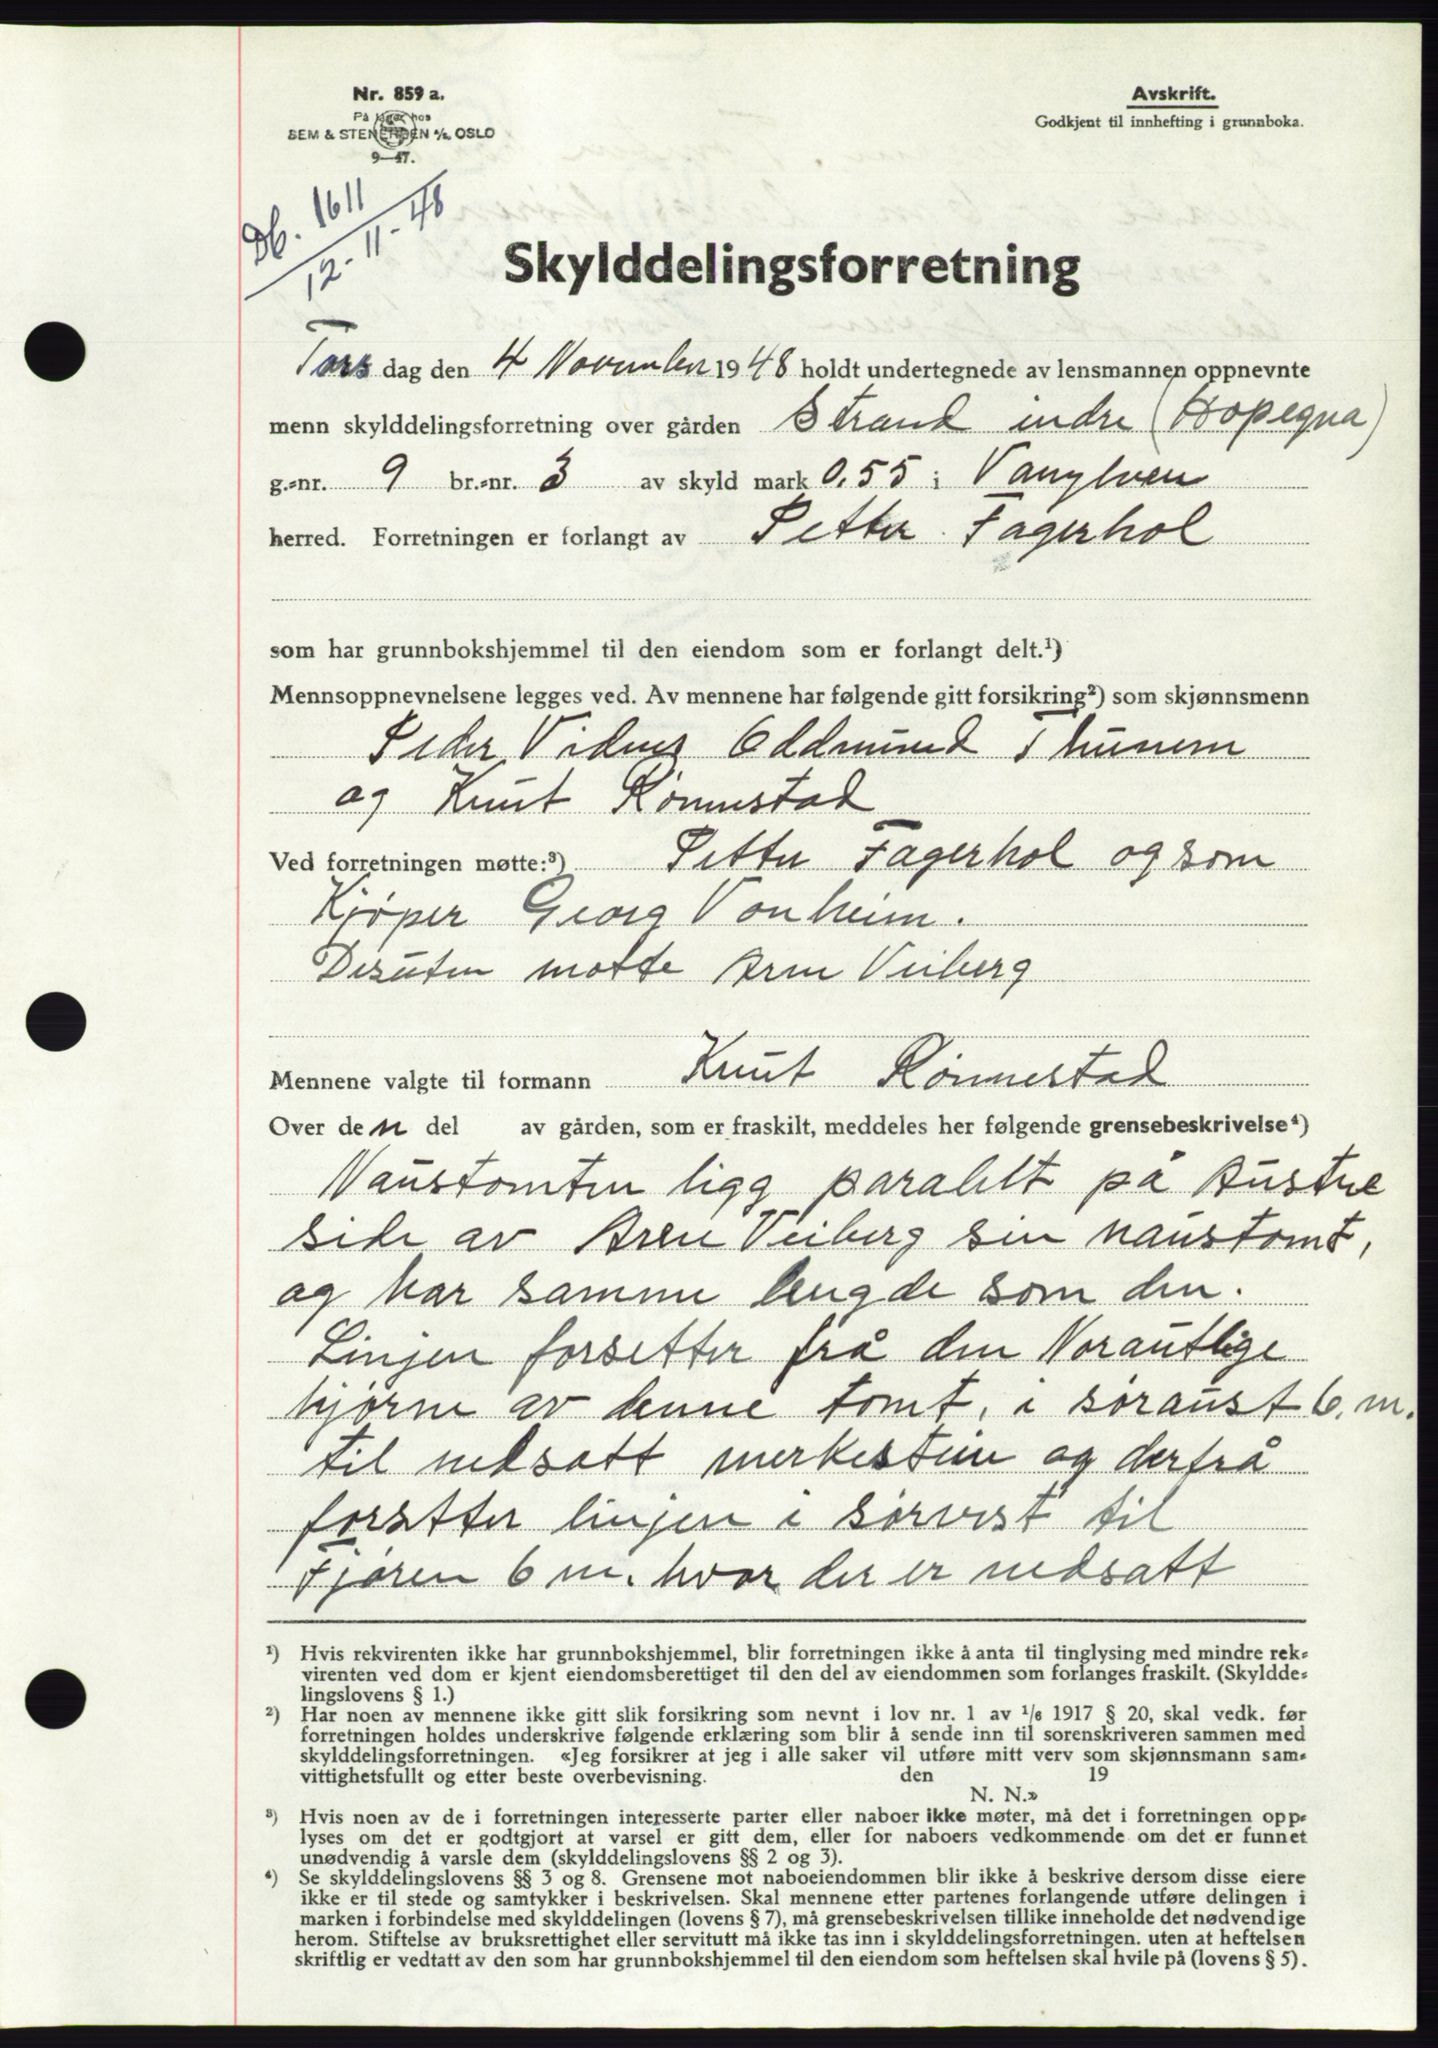 Nr. 859 a.
På lager hos
SEM & STENERSEN A/S, OSLO
9—47.
Avskrift.
Godkjent til innhefting i grunnboka.
Db. 1611
12-11-48
Skylddelingsforretning
Torsdag den 4 November 1948 holdt undertegnede av lensmannen oppnevnte
menn skylddelingsforretning over gården Strand indre (Hopegna)
g.=nr. 9 br.=nr. 3 av skyld mark 0.55 i Vanylven
herred. Forretningen er forlangt av Petter Fagerhol
som har grunnbokshjemmel til den eiendom som er forlangt delt.¹)
Mennsoppnevnelsene legges ved. Av mennene har følgende gitt forsikring²) som skjønnsmenn
Peder Vidnes Oddmund Thunem
og Knut Rønnestad
Ved forretningen møtte:³) Petter Fagerhol og som
Kjøper Georg Vonheim.
Desuten møtte Arne Veiberg
Mennene valgte til formann Knut Rønnestad
Over den del av gården, som er fraskilt, meddeles her følgende grensebeskrivelse⁴)
Naustomten ligg paralelt på Austre
side av Arne Veiberg sin naustomt,
og har samme lengde som den.
Linjen forsetter frå den Norautlige
hjørne av denne tomt, i søraust 6. m.
til nedsatt merkestein og derfrå
forsetter linjen i sørvest til
Fjøren 6 m. hvor der er nedsatt
¹) Hvis rekvirenten ikke har grunnbokshjemmel, blir forretningen ikke å anta til tinglysing med mindre rek=
virenten ved dom er kjent eiendomsberettiget til den del av eiendommen som forlanges fraskilt. (Skyldde=
lingslovens § 1.)
²) Har noen av mennene ikke gitt slik forsikring som nevnt i lov nr. 1 av 1/6 1917 § 20, skal vedk. før
forretningen holdes underskrive følgende erklæring som blir å sende inn til sorenskriveren sammen med
skylddelingsforretningen. «Jeg forsikrer at jeg i alle saker vil utføre mitt verv som skjønnsmann sam=
vittighetsfullt og etter beste overbevisning. den 19
N. N.»
³) Hvis noen av de i forretningen interesserte parter eller naboer ikke møter, må det i forretningen opp=
lyses om det er godtgjort at varsel er gitt dem, eller for naboers vedkommende om det er funnet
unødvendig å varsle dem (skylddelingslovens §§ 2 og 3).
⁴) Se skylddelingslovens §§ 3 og 8. Grensene mot naboeiendommen blir ikke å beskrive dersom disse eiere
ikke er til stede og samtykker i beskrivelsen. Skal mennene etter partenes forlangende utføre delingen i
marken i forbindelse med skylddelingen (lovens § 7), må grensebeskrivelsen tillike inneholde det nødvendige
herom. Stiftelse av bruksrettighet eller servitutt må ikke tas inn i skylddelingsforretningen. uten at heftelsen
skriftlig er vedtatt av den som har grunnbokshjemmel til den eiendom som heftelsen skal hvile på (lovens § 5).